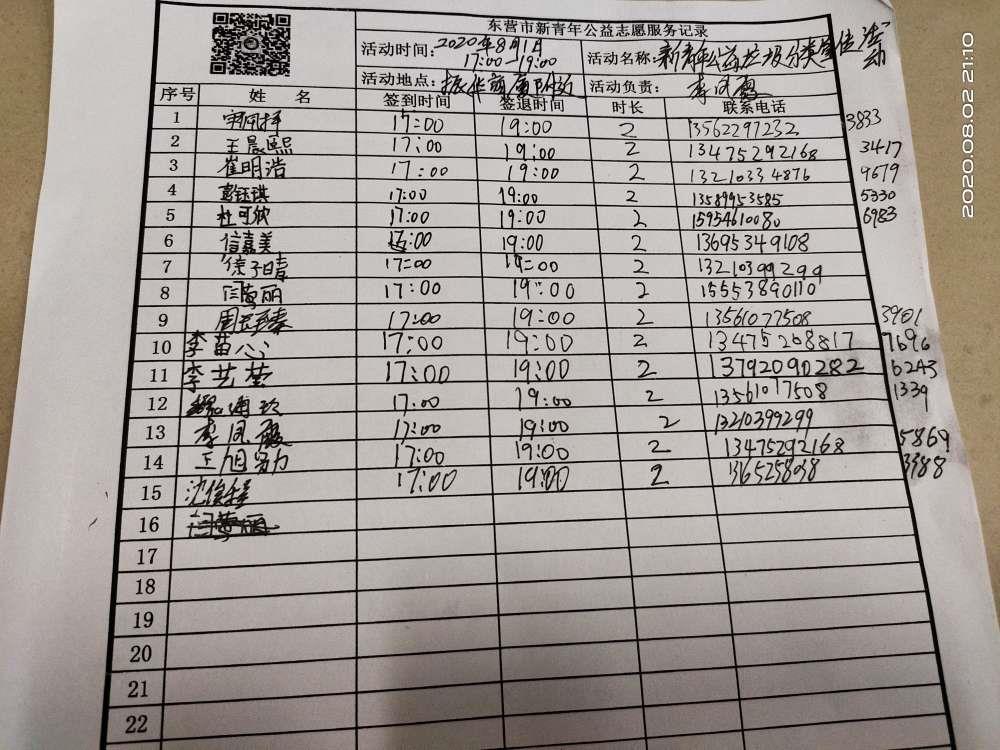 东营市新青年公益志愿服务记录
活动时间: 2020年8月1日 17:00-19:00 活动名称: 新青年公益垃圾分类宣传活动
活动地点: 振华商厦附近 活动负责: 李凤霞
序号 姓 名 签到时间 签退时间 时长 联系电话
1 17:00 19:00 2 13562297232 3833
2 王晨熙 17:00 19:00 2 13475292168 3417
3 崔明浩 17:00 19:00 2 13210334876 9679
4 彭钰琪 17:00 19:00 2 13589953585 5330
5 杜可欣 17:00 19:00 2 15954610080 6983
6 信嘉美 17:00 19:00 2 13695349108
7 徐子晴 17:00 19:00 2 13210399299
8 闫梦丽 17:00 19:00 2 15553890110
9 17:00 19:00 2 13561077508 3901
10 李苗心 17:00 19:00 2 13475268817 7696
11 李艺莹 17:00 19:00 2 13792090282 6245
12 17:00 19:00 2 13561077508 1339
13 李凤霞 17:00 19:00 2 1320399299
14 王旭 17:00 19:00 2 13475292168 5869
15 沈 17:00 19:00 2 3988
16 闫梦丽
17
18
19
20
21
22
2020.08.02 21:10